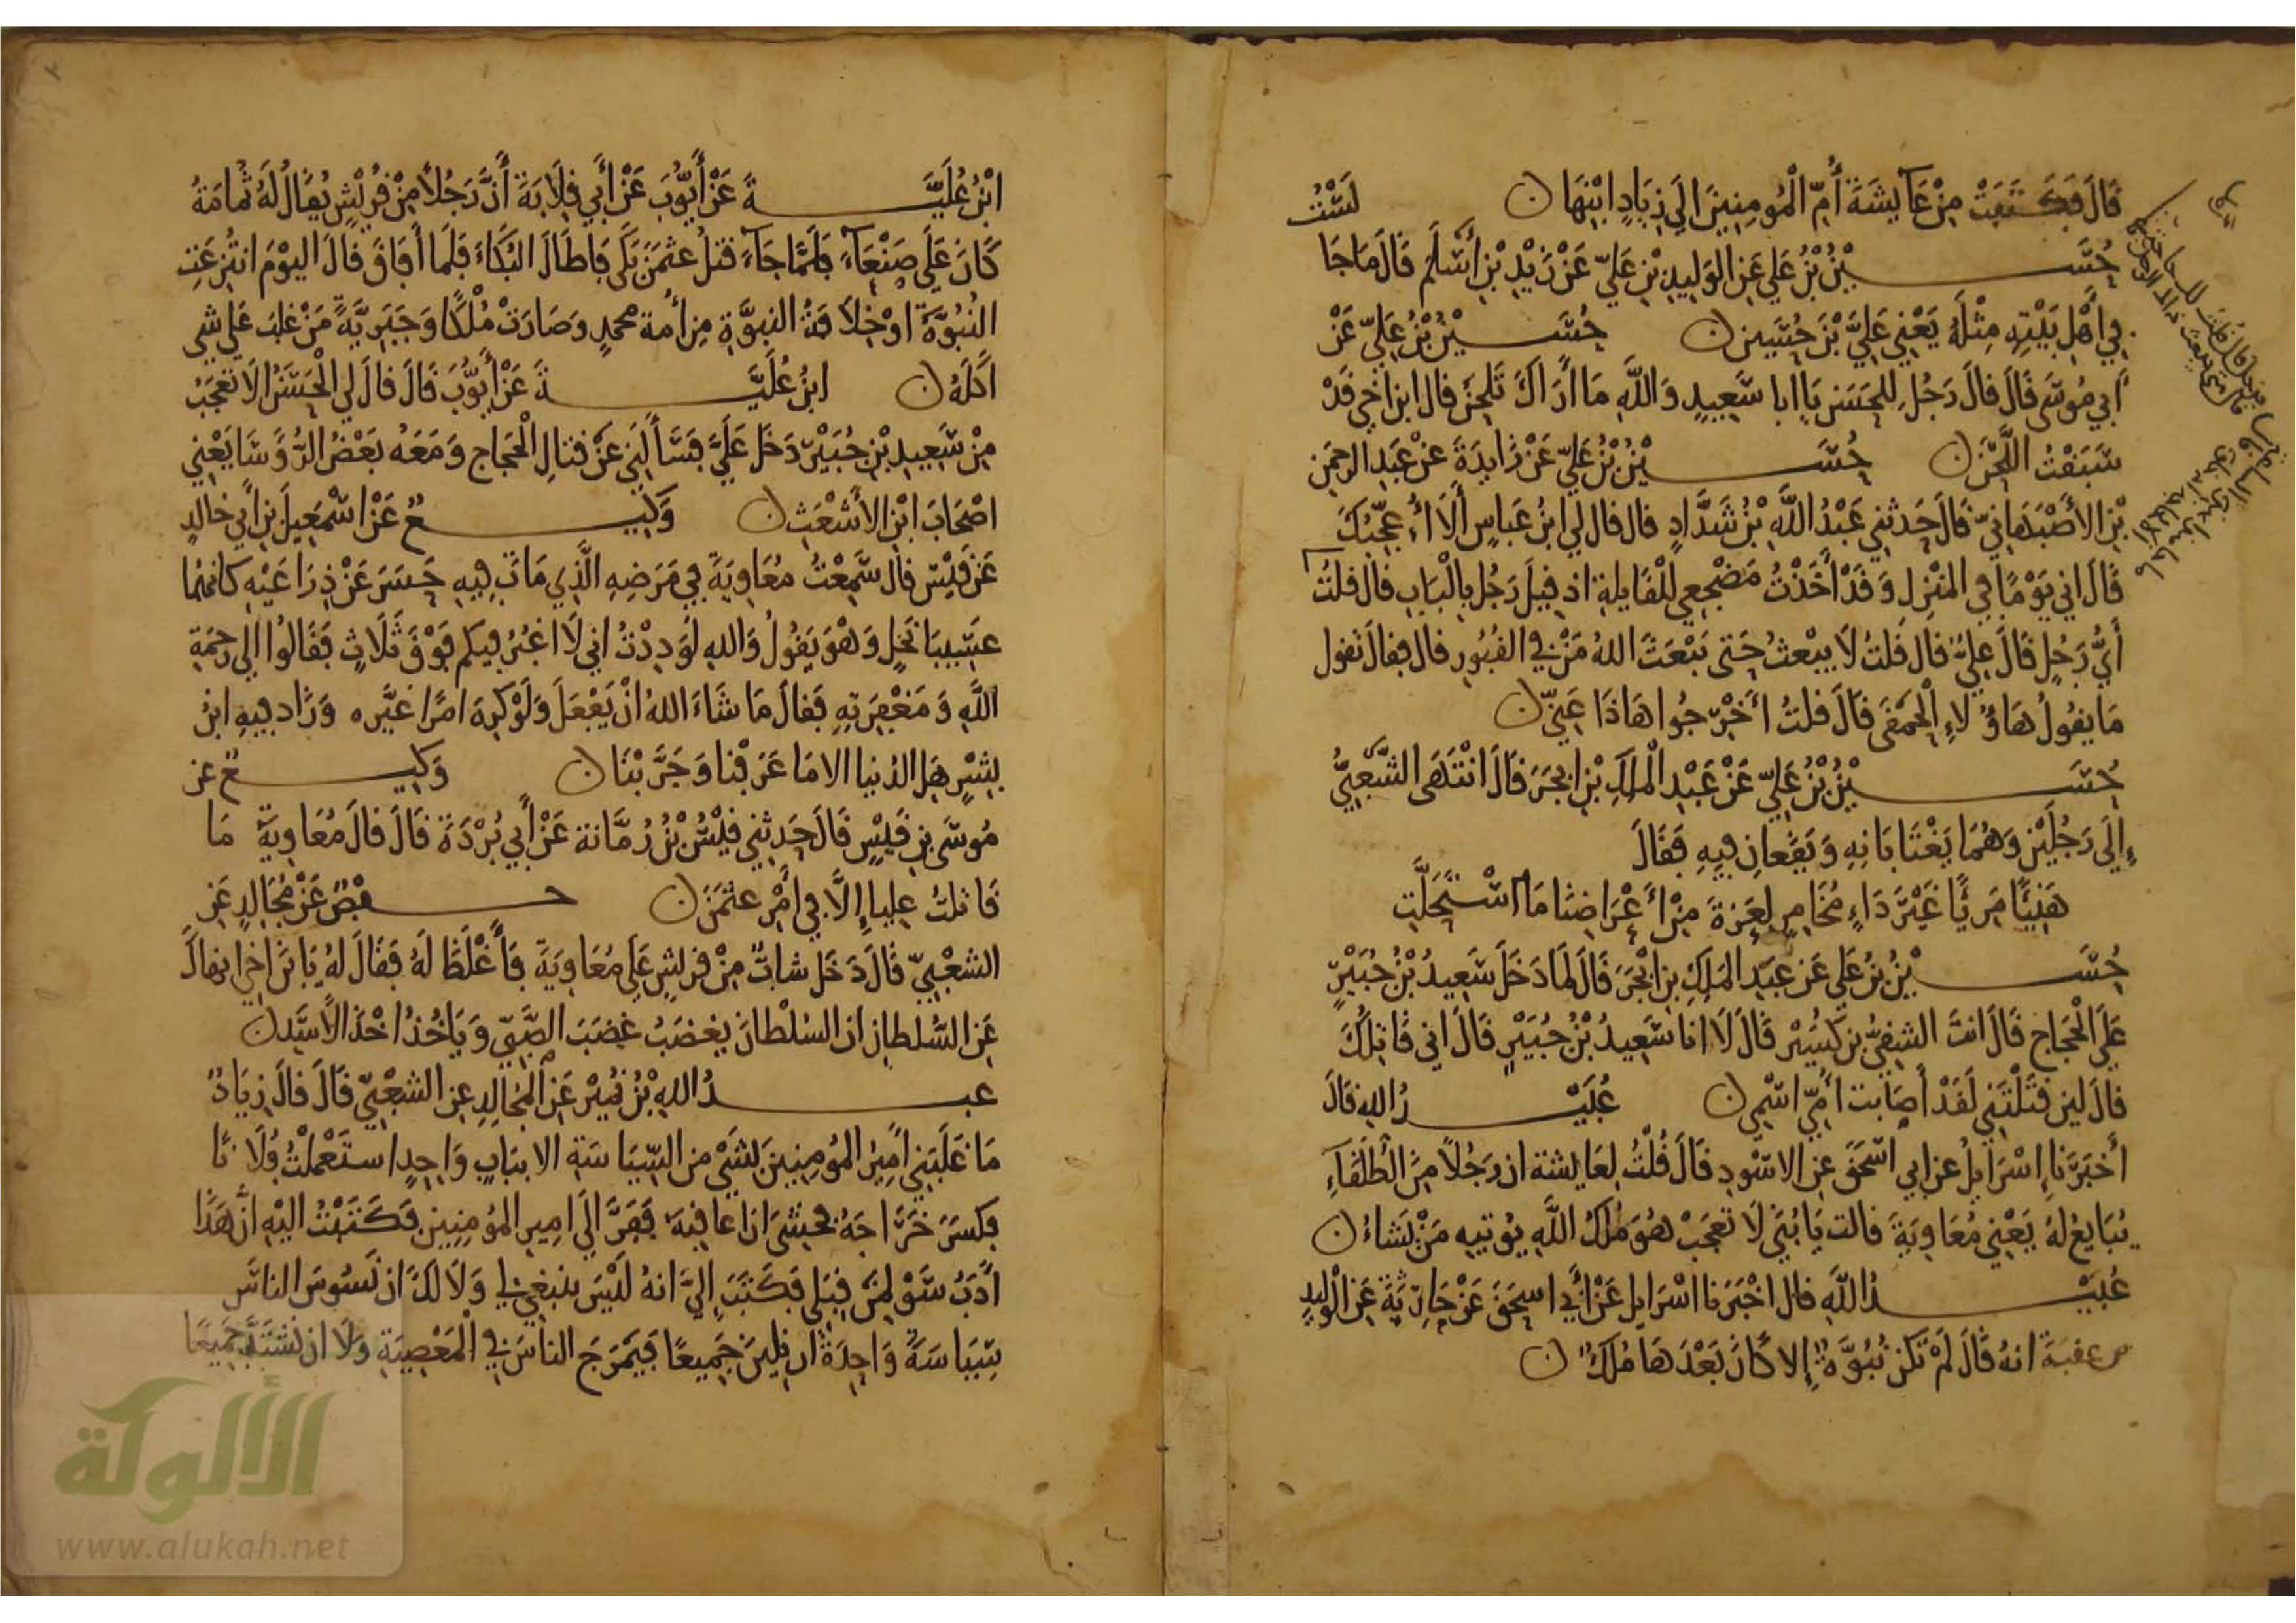 قَالَ فَكَتَبَتْ مِنْ عَآيِشَةَ أُمِّ الْمُومِنِينَ إلَي زِيَادٍ ابْنِهَا ن
حُسَيْنُ بْنُ عَلِي عَنِ الوَلِيدِ بْنِ عَلِيّ عَنْ زَيْدِ بْنِ أَسْلَمَ قَالَ مَا جَا
فِي أَهْلِ بَيْتِهِ مِثْلَهُ يَعْنِي عَلِيَّ بْنَ حُسَيْنٍ ن حُسَيْنُ بْنُ عَلِيّ عَنْ
أبِي مُوسَى قَالَ قالَ رَجُلٌ لِلحَسَنِ يَا ابا سَعِيدٍ وَاللَّهِ مَا أَرَاكَ تَلْحَنُ قال ابن اخِي قَدْ
سَبَقْتُ اللَّحْنَ ن حُسَيْنُ بْنُ عَلِيّ عَنْ زَايِدَةَ عَنْ عَبْدِ الرحمَنِ
بْنِ الأَصْبَهَانِيّ قَالَ حَدثنِي عَبْدُ اللَّهِ بْنُ شَدَّادٍ قال قال لِي ابْنُ عَبَاسٍ أَلَا أُعَجِّبُكَ
قَالَ انِي يَوْمًا فِي المَنْزِلِ وَقَدْ أَخَذْتُ مَضْجَعِي لِلْقَايِلَةِ اذ قِيلَ رَجُل بِالْبَابِ قالَ قلتُ
أَيُّ رَجُلٍ قَالَ عَلِيٌّ قَالَ قلتُ لَا يبْعثُ حَتى يَبْعَثَ اللهُ مَنْ فِي القُبُورِ قال فقالَ تَقول
مَا يقُولُ هَاؤُلاءِ الْحَمْقَى قَالَ قلتُ أَخْرِجُوا هَاذَا عَنِّي ن
حُسَيْنُ بْنُ عَلِيّ عَنْ عَبْدِ الْمَلِكِ بْنِ ابجَرَ قَالَ انْتَهَى الشَّعْبِيُّ
إِلَى رَجُلَيْنِ وَهُمَا يَغْتَابَانِهِ وَيَقَعَانِ فِيهِ فَقَالَ
هَنِيئًا مَرِيًّا غَيْرَ دَاءٍ مُخَامِرٍ لِعَزةَ مِنْ أَعْرَاضِنا مَا اسْتَحَلَّتِ
حُسَيْنُ بْنُ عَلِي عَنْ عَبْدِ المَلِكِ بنِ ابْجَرَ قَالَ لَمَا دَخَلَ سَعِيدُ بْنُ جُبَيْرٍ
عَلَي الْحَجَاجِ قَالَ انتَ الشقِيُّ بن كُسَيْرٍ قَالَ لَا انا سَعِيدُ بْنُ جُبَيْرٍ قَالَ اني قَاتِلُكَ
قالَ لين قَتَلْتَنِي لَقَدْ أَصَابت أُمِّي اسْمِي ن عُبَيْدُ اللهِ قَالَ
أَخْبَرَنَا إِسْرَايِلُ عن ابِي اسْحَقَ عَنِ الاسْوَدِ قَالَ قُلْتُ لِعَايِشة ان رَجُلاً مِنَ الْطُلَقَآءِ
يُبَايعُ لهُ يَعْنِي مُعَاوِيَةَ قالت يَا بُنَيَّ لَا تَعْجَبْ هُوَ مُلكُ اللَّهِ يُوتيهِ مَنْ يَشَاءُ ن
عُبَيْدُ اللَّهِ قال اخْبَرَنا اسْرَايِل عَنْ أَبِي اسحَقَ عَنْ حَارِثَةَ عَنِ الْولِيدِ
بن عقبَةَ انهُ قَالَ لَمْ تَكُن نُبُوَّةٌ إِلا كَانَ بَعْدَهَا مُلكٌ ن
ابْنُ عُلَيَّةَ عَنْ أَيُّوبَ عَنْ أَبِي قِلَابَةَ أَنَّ رَجُلاً مِنْ قُرَيْشٍ يُقالُ لَهُ ثُمَامَةُ
كَانَ عَلَى صَنْعَآءَ فَلَمَّا جَآءَهُ قتلُ عثمَنَ بَكَى فَاطَالَ البُكَآءَ فَلَمَا أَفَاقَ قالَ اليَوْمَ انتُزِعَتِ
النبُوَّةُ اوْ خِلاَفَةُ النبوَّةِ مِن أُمة محمدٍ وَصَارَتْ مُلْكًا وَجَبَرِيَّةً مَنْ غلبَ عَلَى شي
اَكَلَهُ ن ابنُ عُلَيَّةَ عَنْ أَيُّوبَ قَالَ قالَ لِي الْحَسَنُ الَا تَعْجَبُ
مِنْ سَعِيدِ بْنِ جُبَيْرٍ دَخَلَ عَلَيَّ فَسَأَلَنِي عَنْ قتالِ الْحَجاج وَمَعَهُ بَعْضُ الرُّوَسَا يَعْنِي
اصْحَابَ ابْنِ الأَشْعَثِ ن وَكِيعٌ عَنْ اسْمَعِيلَ بْنِ أَبِي خَالِدٍ
عَنْ قَيْسٍ قال سَمِعْتُ مُعَاوِيَةَ فِي مَرَضِهِ الَّذِي مَاتَ فِيهِ حَسَرَ عَنْ ذِرَاعَيْهِ كانهُما
عَسِيبَا نَخْلٍ وَهْوَ يَقُولُ وَاللهِ لَوَدِدْتُ انِي لَا اغْبُرُ فِيكم فَوْقَ ثَلَاثٍ فَقَالُوا اِلَى رَحْمَةِ
اللَّهِ وَمَغْفِرَتِهِ فَقَالَ مَا شَاءَ اللهُ انْ يَفْعَلَ وَلَوْ كَرِهَ امْرًا غيَّره وَزَاد فِيهِ ابْنُ
بِشْرٍ هَلِ الدنيا الا مَا عَرَفْنا وَجَرَّبْنَا ن وَكِيعٌ عن
مُوسَى بنِ قَيْسٍ قَالَ حَدثنِي قَيْسُ بْنُ رُمَّانة عَنْ أَبِي بُرْدَةَ قَالَ قالَ مُعَاوِيَةُ مَا
قَاتلتُ عليا إِلَّا فِي أَمْرِ عثمَنَ ن حفْصٌ عَنْ مُجَالِدٍ عَنِ
الشعْبِيّ قَالَ دَخَلَ شابٌّ مِنْ قريشٍ عَلَى مُعَاوِيَةَ فَأَغْلَظَ لَهُ فَقَالَ لهُ يَا بْنَ اخِي انهاكَ
عَنِ السُّلطانِ ان السلْطانَ يغضبُ غضَبَ الصَّبِيّ وَيَاخُذُ اخْذَ الاسَدِ ن
عبدُ اللهِ بْنُ نُمَيْرٍ عَنْ المُجَالِدِ عَنِ الشعْبِيّ قَالَ قالَ زيَادٌ
مَا غلَبَنِي امِيرُ المُومِنِينَ بشَيْ مِنَ السِّيَاسَةِ الا ببَابٍ وَاحِدٍ استَعْمَلْتُ فُلَانًا
فكسَرَ خَرَاجَهُ فخشِيَ انْ اعَاقِبَهُ فَفَرَّ الَى امِيرِ المُومِنِينَ فَكَتَبْتُ اليْهِ انَّ هَذَا
ادَبُ سَوْءٍ لِمَنْ قِبَلِي فكَتَبَ إِلَيَّ انهُ لَيْسَ ينبَغِي لي وَلَا لَكَ ان نَسُوسَ الناسَ
سِيَاسَةً وَاحِدَةً ان نَلِينَ جَمِيعًا فَيَمْرَجَ الناسُ فِي الْمَعْصِيَةِ وَلَا ان نشتَدَّ جَمِيعًا
الألوكة
www.alukah.net